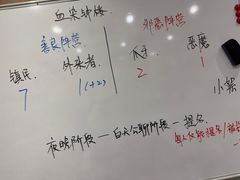 血染钟楼
善良阵营 邪恶阵营
镇民 外来者 爪牙 恶魔
7 1(+2) 2 1
小
夜晚阶段 — 白天公聊阶段 — 提名
每人仅能提名